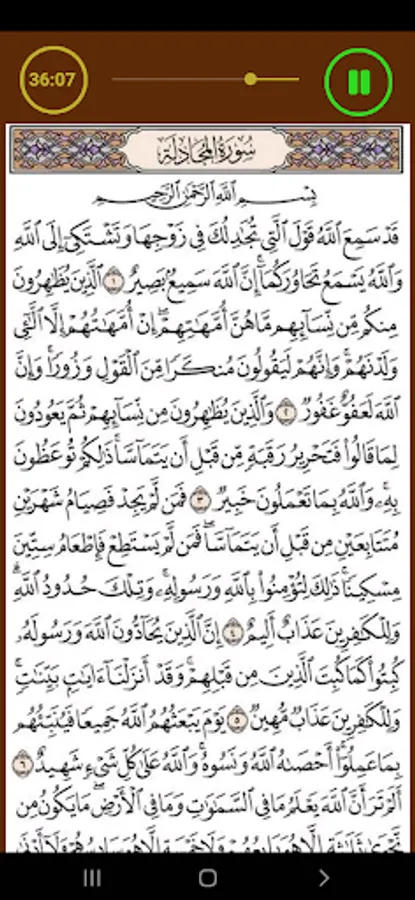 36:07
سُورَةُ المُجَادلة
بِسْمِ ٱللَّهِ ٱلرَّحْمَٰنِ ٱلرَّحِيمِ
قَدْ سَمِعَ ٱللَّهُ قَوْلَ ٱلَّتِي تُجَٰدِلُكَ فِي زَوْجِهَا وَتَشْتَكِيٓ إِلَى ٱللَّهِ
وَٱللَّهُ يَسْمَعُ تَحَاوُرَكُمَآۚ إِنَّ ٱللَّهَ سَمِيعُۢ بَصِيرٌ ١ ٱلَّذِينَ يُظَٰهِرُونَ
مِنكُم مِّن نِّسَآئِهِم مَّا هُنَّ أُمَّهَٰتِهِمْۖ إِنْ أُمَّهَٰتُهُمْ إِلَّا ٱلَّٰٓـِٔي
وَلَدْنَهُمْۚ وَإِنَّهُمْ لَيَقُولُونَ مُنكَرًا مِّنَ ٱلْقَوْلِ وَزُورًاۚ وَإِنَّ
ٱللَّهَ لَعَفُوٌّ غَفُورٌ ٢ وَٱلَّذِينَ يُظَٰهِرُونَ مِن نِّسَآئِهِمْ ثُمَّ يَعُودُونَ
لِمَا قَالُوا۟ فَتَحْرِيرُ رَقَبَةٍ مِّن قَبْلِ أَن يَتَمَآسَّاۚ ذَٰلِكُمْ تُوعَظُونَ
بِهِۦۚ وَٱللَّهُ بِمَا تَعْمَلُونَ خَبِيرٌ ٣ فَمَن لَّمْ يَجِدْ فَصِيَامُ شَهْرَيْنِ
مُتَتَابِعَيْنِ مِن قَبْلِ أَن يَتَمَآسَّاۖ فَمَن لَّمْ يَسْتَطِعْ فَإِطْعَامُ سِتِّينَ
مِسْكِينًاۚ ذَٰلِكَ لِتُؤْمِنُوا۟ بِٱللَّهِ وَرَسُولِهِۦۚ وَتِلْكَ حُدُودُ ٱللَّهِۗ
وَلِلْكَٰفِرِينَ عَذَابٌ أَلِيمٌ ٤ إِنَّ ٱلَّذِينَ يُحَآدُّونَ ٱللَّهَ وَرَسُولَهُۥ
كُبِتُوا۟ كَمَا كُبِتَ ٱلَّذِينَ مِن قَبْلِهِمْۚ وَقَدْ أَنزَلْنَآ ءَايَٰتِۭ بَيِّنَٰتٍۚ
وَلِلْكَٰفِرِينَ عَذَابٌ مُّهِينٌ ٥ يَوْمَ يَبْعَثُهُمُ ٱللَّهُ جَمِيعًا فَيُنَبِّئُهُم
بِمَا عَمِلُوٓا۟ۚ أَحْصَىٰهُ ٱللَّهُ وَنَسُوهُۚ وَٱللَّهُ عَلَىٰ كُلِّ شَيْءٍ شَهِيدٌ ٦
أَلَمْ تَرَ أَنَّ ٱللَّهَ يَعْلَمُ مَا فِي ٱلسَّمَٰوَٰتِ وَمَا فِي ٱلْأَرْضِۖ مَا يَكُونُ مِن
نَّجْوَىٰ ثَلَٰثَةٍ إِلَّا هُوَ رَابِعُهُمْ وَلَا خَمْسَةٍ إِلَّا هُوَ سَادِسُهُمْ وَلَآ أَدْنَىٰ